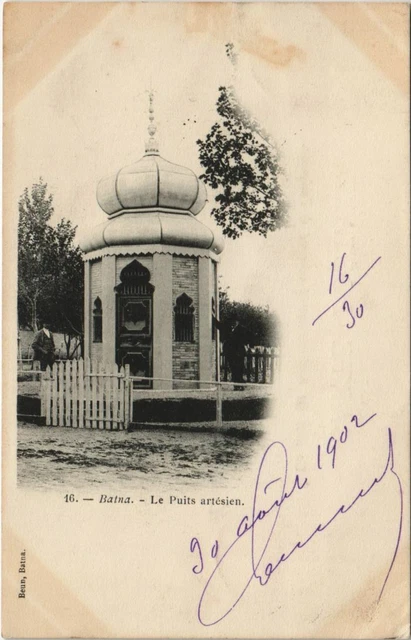 16
30
16. — Batna. - Le Puits artésien.
30 août 1902
Beun, Batna.